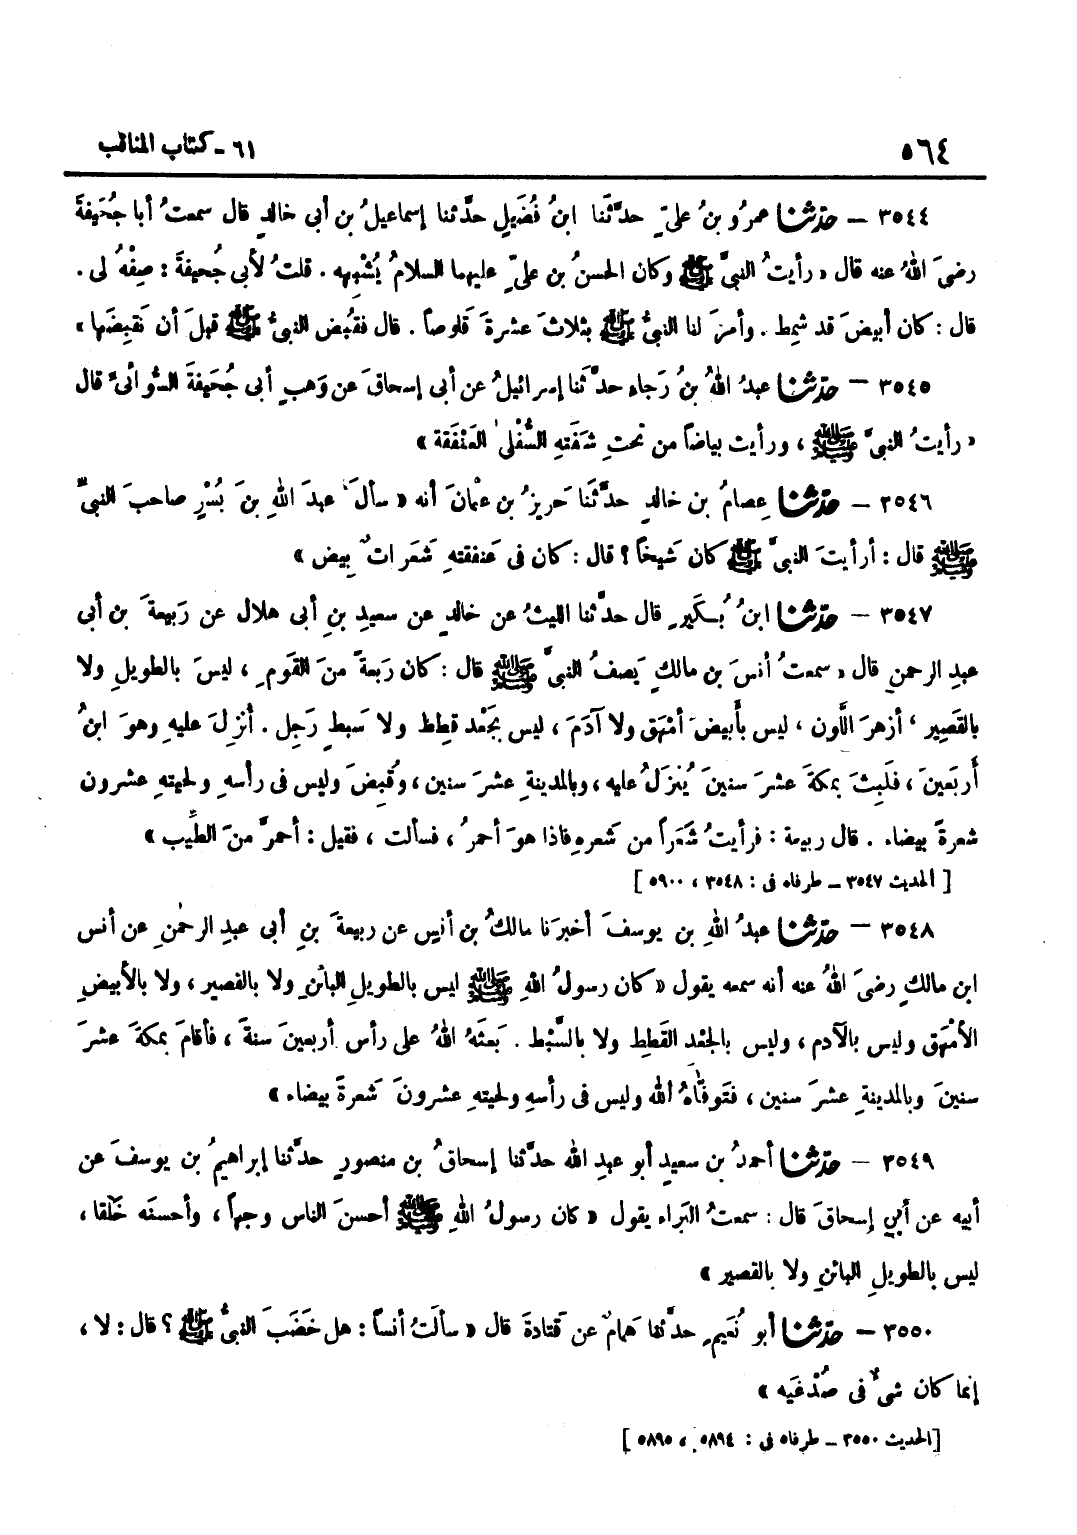 ٥٦٤ ٦١ - كتاب المناقب
٣٥٤٤ – حدثنا عمرُو بنُ علىّ حدَّثَنا ابنُ فُضَيلٍ حدَّثنا إسماعيلُ بن أبى خالدٍ قال سمعتُ أبا جُحَيفةَ
رضىَ اللهُ عنه قال « رأيتُ النبىَّ ﷺ وكان الحسنُ بن علىّ عليهما السلامُ يُشْبِهه . قلتُ لأبى جُحيفةَ : صِفْهُ لى .
قال : كان أبيضَ قد شمِط . وأمرَ لنا النبىُّ ﷺ بثلاثَ عشرةَ قَلوصاً . قال فقُبض النبىُّ ﷺ قبلَ أن نَقبِضَها »
٣٥٤٥ – حدثنا عبدُ اللهُ بنُ رَجاءٍ حدَّثَنا إسرائيلُ عن أبى إسحاقَ عن وَهبٍ أبى جُحَيفةَ السُّوائىِّ قال
« رأيتُ النبىَّ ﷺ ، ورأيت بياضاً من تحتِ شفَتهِ السُّفْلى العَنْفَقة »
٣٥٤٦ – حدثنا عِصامُ بن خالدٍ حدَّثَنا حَريزُ بن عثمانَ أنه « سألَ عبدَ اللهِ بنَ بُسْرٍ صاحبَ النبىِّ
ﷺ قال : أرأيتَ النبىَّ ﷺ كان شَيخاً ؟ قال : كان فى عَنفقتهِ شَعَراتٌ بِيض »
٣٥٤٧ – حدثنا ابنُ بُكَيرٍ قال حدَّثنا الليثُ عن خالدٍ عن سعيدِ بنِ أبى هلال عن رَبيعةَ بن أبى
عبدِ الرحمنِ قال « سمعتُ أنسَ بن مالكٍ يَصفُ النبىَّ ﷺ قال : كان رَبعةً منَ القَومِ ، ليسَ بالطويلِ ولا
بالقَصِير ، أزهرَ اللَّون ، ليس بأبيضَ أمْهَق ولا آدَمَ ، ليس بجَعْد قَطِط ولا سَبطٍ رَجِل . أُنزِلَ عليهِ وهوَ ابنُ
أربَعينَ ، فلَبِثَ بمكةَ عشرَ سنينَ يُنزَلُ عليه ، وبالمدينةِ عشرَ سنين ، وقُبضَ وليس فى رأسهِ ولحيتهِ عشرون
شعرةً بيضاء . قال ربيعة : فرأيتُ شَعَراً من شَعرهِ فاذا هوَ أحمرُ ، فسألت ، فقيل : أحمرَّ منَ الطِّيب »
[ الحديث ٣٥٤٧ – طرفاه فى : ٣٥٤٨ ، ٥٩٠٠ ]
٣٥٤٨ – حدثنا عبدُ اللهِ بن يوسفَ أخبرَنا مالكُ بن أنسٍ عن ربيعةَ بنِ أبى عبدِ الرحمٰنِ عن أنس
ابن مالكٍ رضىَ اللهُ عنه أنه سمعه يقول « كان رسولُ اللهِ ﷺ ليس بالطويلِ البائنِ ولا بالقصير ، ولا بالأبيضِ
الأمْهَق وليس بالآدم ، وليس بالجَعْد القَطِط ولا بالسَّبْط . بَعثَهُ اللهُ على رأس أربعينَ سنةً ، فأقامَ بمكةَ عشرَ
سنينَ وبالمدينةِ عشرَ سنين ، فتَوفَّاهُ الله وليس فى رأسهِ ولحيتهِ عشرونَ شعرةً بيضاء »
٣٥٤٩ – حدثنا أحمدُ بن سعيدٍ أبو عبدِ الله حدَّثنا إسحاقُ بن منصورٍ حدَّثنا إبراهيمُ بن يوسفَ عن
أبيه عن أبي إسحاقَ قال : سمعتُ البَراء يقول « كان رسولُ اللهِ ﷺ أحسنَ الناس وجهاً ، وأحسنَه خَلقا ،
ليس بالطويلِ البائنِ ولا بالقصير »
٣٥٥٠ – حدثنا أبو نُعَيمٍ حدَّثنا هَمامٌ عن قَتادةَ قال « سألتُ أنساً : هل خَضَبَ النبىُّ ﷺ ؟ قال : لا ،
إنما كان شىءٌ فى صُدْغَيه »
[ الحديث ٣٥٥٠ – طرفاه فى : ٥٨٩٤ ، ٥٨٩٥ ]